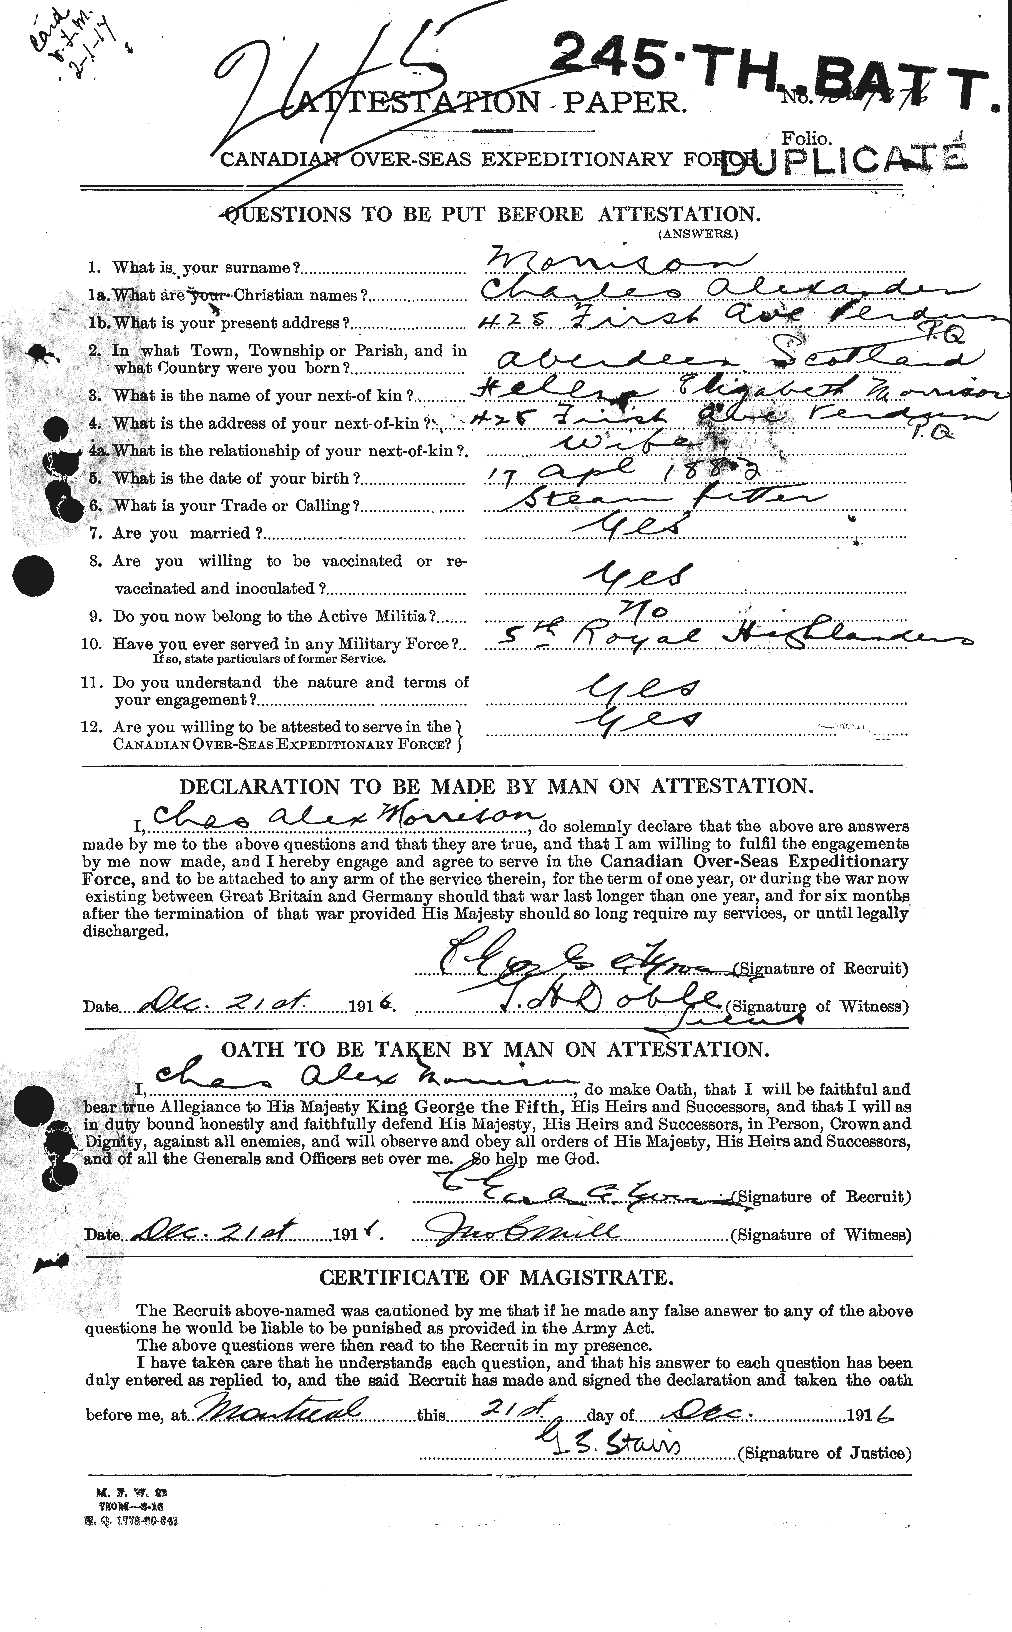 Card
2-1-17
245
245·TH. BATT.
ATTESTATION PAPER.
No.
Folio.
CANADIAN OVER-SEAS EXPEDITIONARY FORCE.
DUPLICATE
QUESTIONS TO BE PUT BEFORE ATTESTATION.
(ANSWERS.)
1. What is your surname? Morrison
1a. What are your Christian names? Charles Alexander
1b. What is your present address? 425 First Ave Verdun P.Q
2. In what Town, Township or Parish, and in
what Country were you born? Aberdeen Scotland
3. What is the name of your next-of kin? Helena Elizabeth Morrison
4. What is the address of your next-of-kin? 425 First Ave Verdun P.Q
4a. What is the relationship of your next-of-kin? Wife
5. What is the date of your birth? 17 Apl 1882
6. What is your Trade or Calling? Steam fitter
7. Are you married? Yes
8. Are you willing to be vaccinated or re-
vaccinated and inoculated? Yes
9. Do you now belong to the Active Militia? No
10. Have you ever served in any Military Force? 5th Royal Highlanders
If so, state particulars of former Service.
11. Do you understand the nature and terms of
your engagement? Yes
12. Are you willing to be attested to serve in the } Yes
CANADIAN OVER-SEAS EXPEDITIONARY FORCE? }
DECLARATION TO BE MADE BY MAN ON ATTESTATION.
I, Chas Alex Morrison, do solemnly declare that the above are answers
made by me to the above questions and that they are true, and that I am willing to fulfil the engagements
by me now made, and I hereby engage and agree to serve in the Canadian Over-Seas Expeditionary
Force, and to be attached to any arm of the service therein, for the term of one year, or during the war now
existing between Great Britain and Germany should that war last longer than one year, and for six months
after the termination of that war provided His Majesty should so long require my services, or until legally
discharged.
(Signature of Recruit)
Date Dec. 21st. 1916. (Signature of Witness)
OATH TO BE TAKEN BY MAN ON ATTESTATION.
I, Chas Alex Morrison, do make Oath, that I will be faithful and
bear true Allegiance to His Majesty King George the Fifth, His Heirs and Successors, and that I will as
in duty bound honestly and faithfully defend His Majesty, His Heirs and Successors, in Person, Crown and
Dignity, against all enemies, and will observe and obey all orders of His Majesty, His Heirs and Successors,
and of all the Generals and Officers set over me. So help me God.
(Signature of Recruit)
Date Dec. 21st 1916. (Signature of Witness)
CERTIFICATE OF MAGISTRATE.
The Recruit above-named was cautioned by me that if he made any false answer to any of the above
questions he would be liable to be punished as provided in the Army Act.
The above questions were then read to the Recruit in my presence.
I have taken care that he understands each question, and that his answer to each question has been
duly entered as replied to, and the said Recruit has made and signed the declaration and taken the oath
before me, at Montreal this 21st. day of Dec. 1916
G. S. Stairs (Signature of Justice)
M. F. W. 23